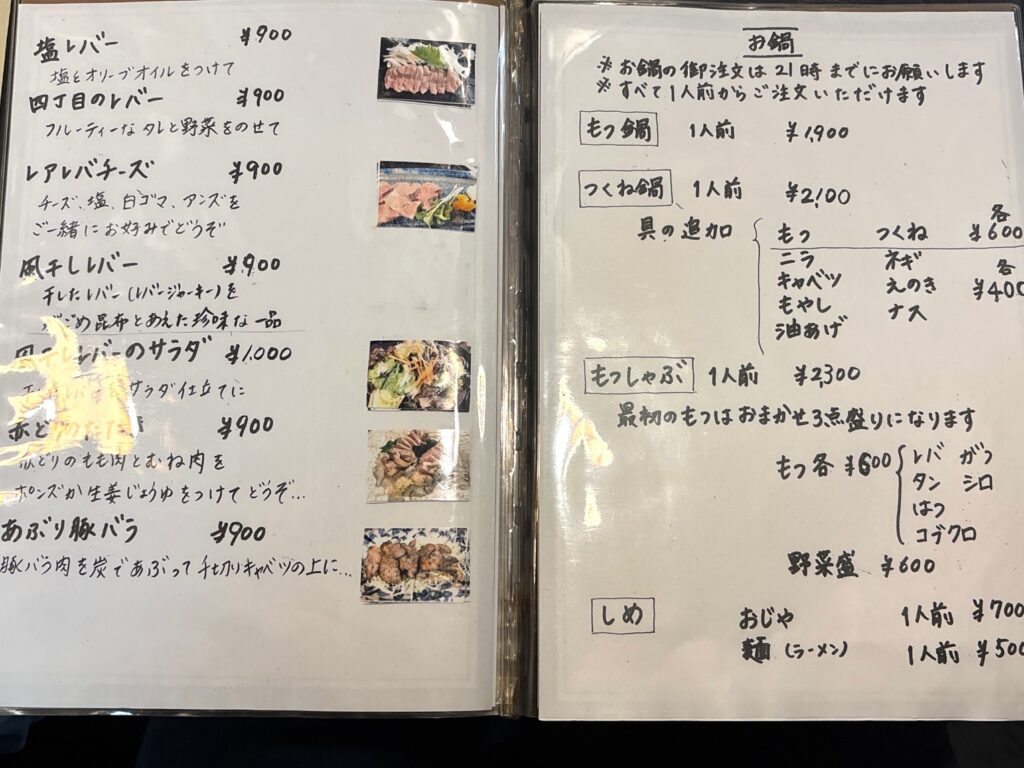 塩レバー ¥900
塩とオリーブオイルをつけて
四丁目のレバー ¥900
フルーティーなタレと野菜をのせて
レアレバチーズ ¥900
チーズ、塩、白ゴマ、アンズを
ご一緒にお好みでどうぞ
風干しレバー ¥900
干したレバー(レバージャーキー)を
昆布とあえた珍味な一品
レバーのサラダ ¥1,000
サラダ仕立てに
赤どりのたたき ¥900
赤どりのもも肉とむね肉を
ポンズか生姜じょうゆをつけてどうぞ…
あぶり豚バラ ¥900
豚バラ肉を炭であぶって千切りキャベツの上に…
お鍋
※お鍋の御注文は21時までにお願いします
※すべて1人前からご注文いただけます
もつ鍋 1人前 ¥1,900
つくね鍋 1人前 ¥2,100
具の追加 もつ つくね 各¥600
ニラ ネギ 各¥400
キャベツ えのき
もやし ナス
油あげ
もつしゃぶ 1人前 ¥2,300
最初のもつはおまかせ3点盛りになります
もつ各¥600 レバ ガツ
タン シロ
はつ
コブクロ
野菜盛 ¥600
しめ おじや 1人前 ¥700
麺(ラーメン) 1人前 ¥500